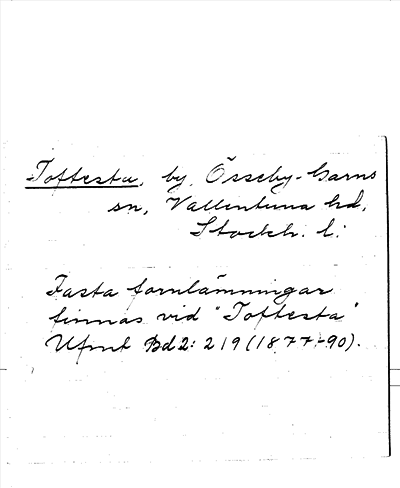 Toftesta, by, Össeby-Garns
sn, Vallentuna hd,
Stockh. l:
Fasta fornlämningar
finnas vid "Toftesta"
Ufmt Bd 2: 219 (1877-90).